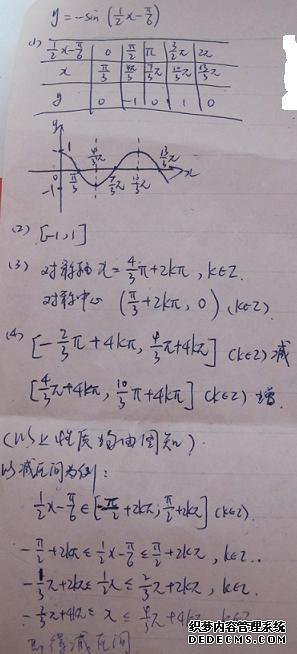 y = -sin (1/2x - π/6)
(1) 1/2x - π/6 0 π/2 π 3/2π 2π
x π/3 4π/3 7/3π 10/3π 13/3π
y 0 -1 0 1 0
y
1 4/3π 13/3π
0 x
-1 π/3 7/3π
(2) [-1,1]
(3) 对称轴 x = 4/3π + 2kπ , k∈Z.
对称中心 (π/3 + 2kπ , 0) (k∈Z).
(4) [-2/3π + 4kπ, 4/3π + 4kπ] (k∈Z) 减
[4/3π + 4kπ, 10/3π + 4kπ] (k∈Z) 增.
(以上性质均由图知).
以减区间为例:
1/2x - π/6 ∈ [-π/2 + 2kπ, π/2 + 2kπ] (k∈Z).
-π/2 + 2kπ ≤ 1/2x - π/6 ≤ π/2 + 2kπ, k∈Z.
-1/3π + 2kπ ≤ 1/2x ≤ 2/3π + 2kπ, k∈Z.
-2/3π + 4kπ ≤ x ≤ 4/3π + 4kπ, k∈Z
即得减区间.
织梦内容管理系统
DEDECMS.COM